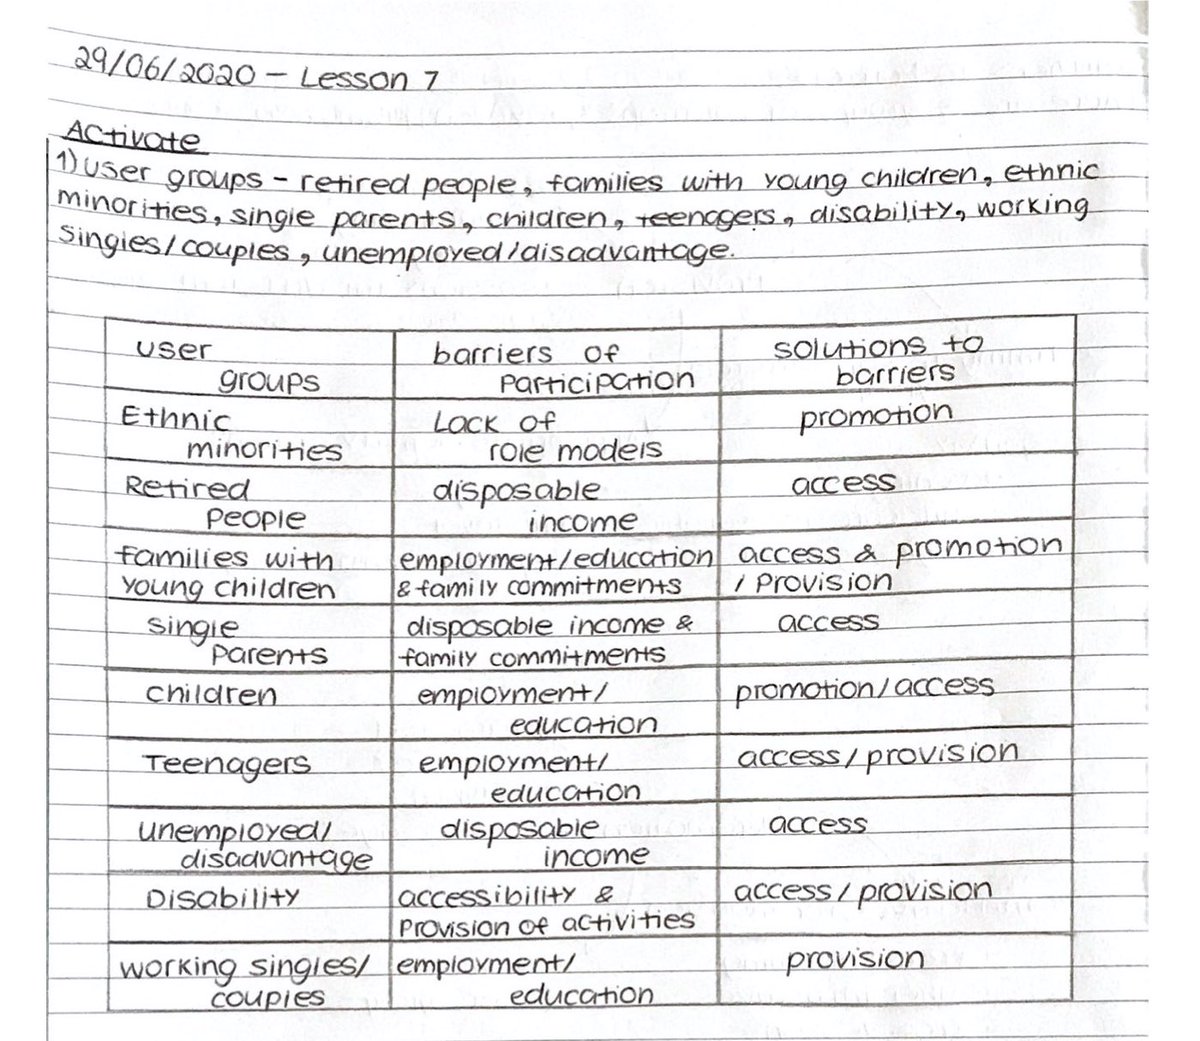 29/06/2020 - Lesson 7
Activate
1) user groups - retired people, families with young children, ethnic
minorities, single parents, children, teenagers, disability, working
singles/couples, unemployed/disadvantage.
user groups | barriers of Participation | solutions to barriers
Ethnic minorities | Lack of role models | promotion
Retired People | disposable income | access
families with young children | employment/education & family commitments | access & promotion / Provision
single Parents | disposable income & family commitments | access
children | employment/ education | promotion/access
Teenagers | employment/ education | access/provision
unemployed/ disadvantage | disposable income | access
Disability | accessibility & Provision of activities | access/provision
working singles/ couples | employment/ education | provision